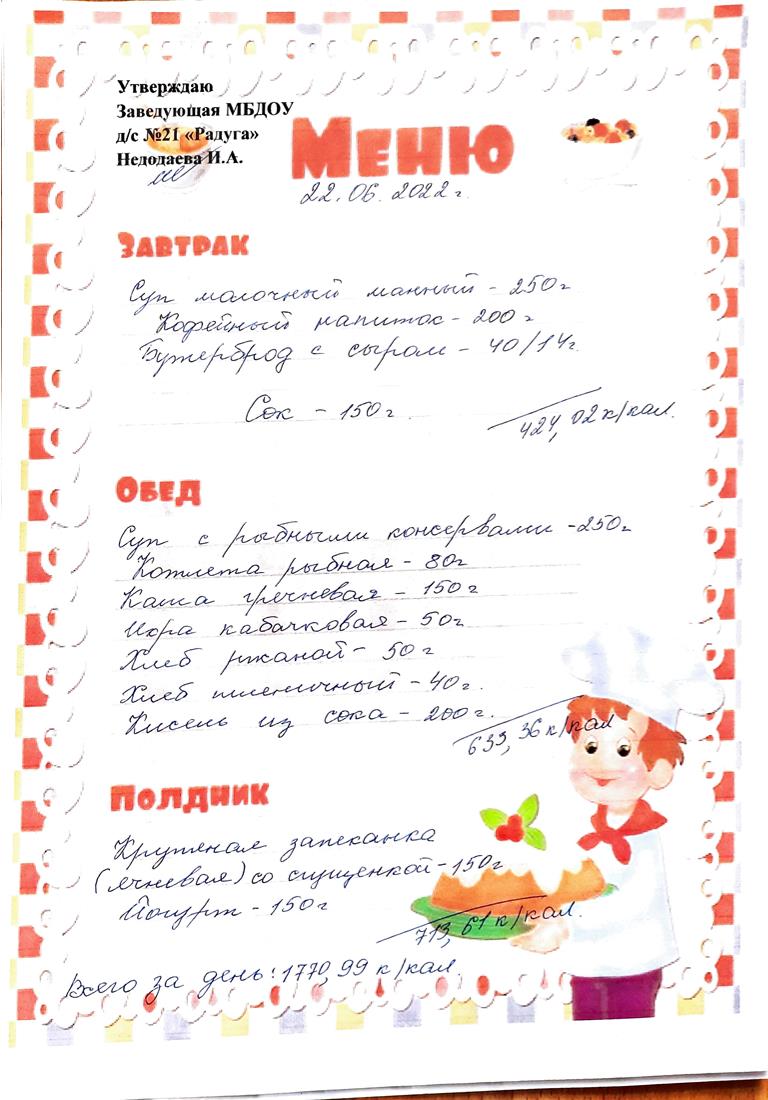 Утверждаю
Заведующая МБДОУ
д/с №21 «Радуга»
Недодаева И.А.
Меню
22.06.2022г.
Завтрак
Суп молочный манный - 250г
Кофейный напиток - 200г
Бутерброд с сыром - 40/14г.
Сок - 150г.
424,02 к/кал.
Обед
Суп с рыбными консервами - 250г
Котлета рыбная - 80г
Каша гречневая - 150г
Икра кабачковая - 50г
Хлеб ржаной - 50г
Хлеб пшеничный - 40г.
Кисель из сока - 200г.
633,36 к/кал
Полдник
Крупяная запеканка
(ячневая) со сгущенкой - 150г
Йогурт - 150г
713,61 к/кал.
Всего за день: 1770,99 к/кал.